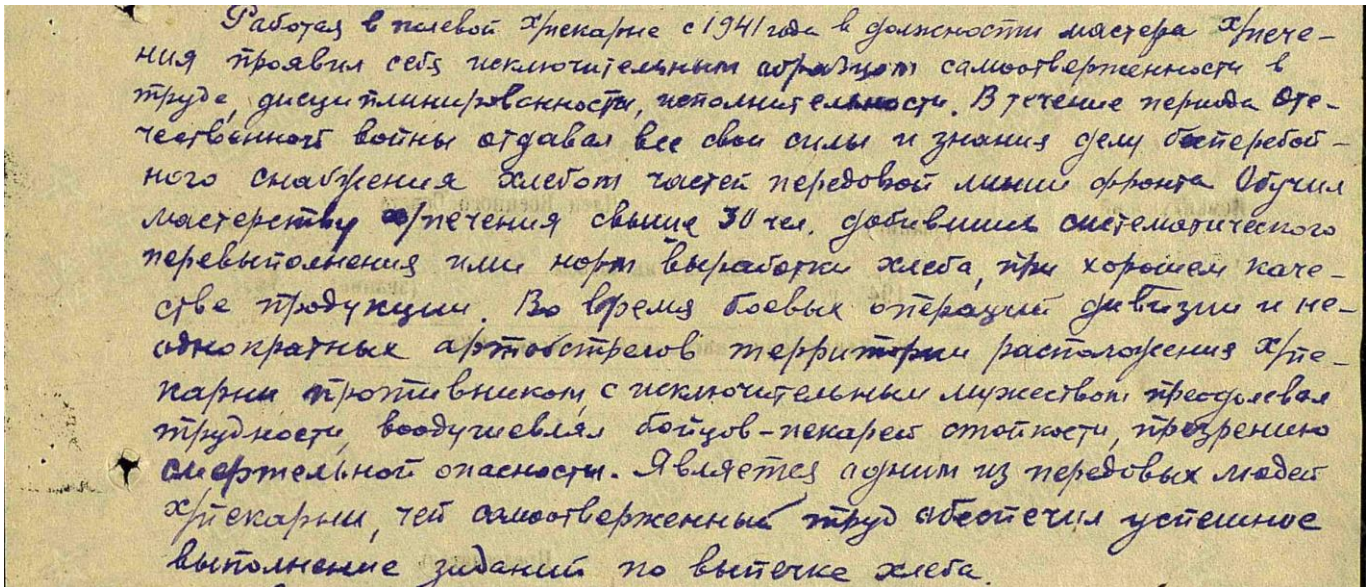 Работая в полевой х/пекарне с 1941 года в должности мастера х/пече-
ния проявил себя исключительным образцом самоотверженности в
труде, дисциплинированности, исполнительности. В течение периода Оте-
чественной войны отдавал все свои силы и знания делу бесперебой-
ного снабжения хлебом частей передовой линии фронта. Обучил
мастерству х/печения свыше 30 чел. добившись систематического
перевыполнения ими норм выработки хлеба, при хорошем каче-
стве продукции. Во время боевых операций дивизии и не-
однократных артобстрелов территории расположения х/пе-
карни противником, с исключительным мужеством преодолевал
трудности, воодушевлял бойцов-пекарей стойкости, презрению
смертельной опасности. Является одним из передовых людей
х/пекарни, чей самоотверженный труд обеспечил успешное
выполнение заданий по выпечке хлеба.